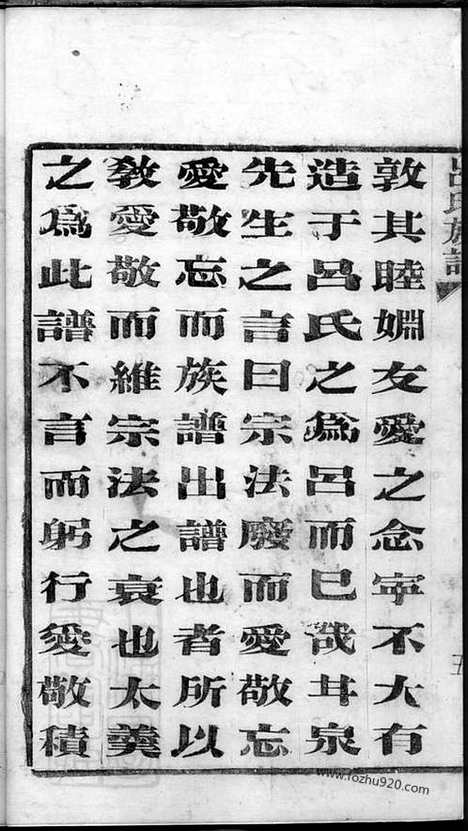 呂氏族譜
敦其睦婣友愛之念寜不大有
造于呂氏之爲呂而已哉甘泉
先生之言曰宗法廢而愛敬忘
愛敬忘而族譜出譜也者所以
敎愛敬而維宗法之衰也太羮
之爲此譜不言而躬行愛敬積
www.fozhu920.com